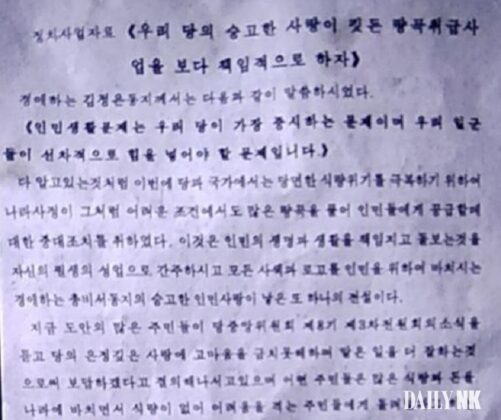 정치사업자료 《우리 당의 숭고한 사랑이 깃든 량곡취급사
업을 보다 책임적으로 하자》
경애하는 김정은동지께서는 다음과 같이 말씀하시였다.
《인민생활문제는 우리 당이 가장 중시하는 문제이며 우리 일군
들이 선차적으로 힘을 넣어야 할 문제입니다.》
다 알고있는것처럼 이번에 당과 국가에서는 당면한 식량위기를 극복하기 위하여
나라사정이 그처럼 어려운 조건에서도 많은 량곡을 풀어 인민들에게 공급할데
대한 중대조치를 취하였다. 이것은 인민의 생명과 생활을 책임지고 돌보는것을
자신의 필생의 성업으로 간주하시고 모든 사색과 로고를 인민을 위하여 바치시는
경애하는 총비서동지의 숭고한 인민사랑이 낳은 또 하나의 전설이다.
지금 도안의 많은 주민들이 당중앙위원회 제8기 제3차전원회의소식을
듣고 당의 은정깊은 사랑에 고마움을 금치못해하며 맡은 일을 더 잘하는것
으로써 보답하겠다고 결의해나서고있으며 어떤 주민들은 많은 식량과 돈을
나라에 바치면서 식량이 없어 어려움을 겪는 주민들에게
DAILYNK